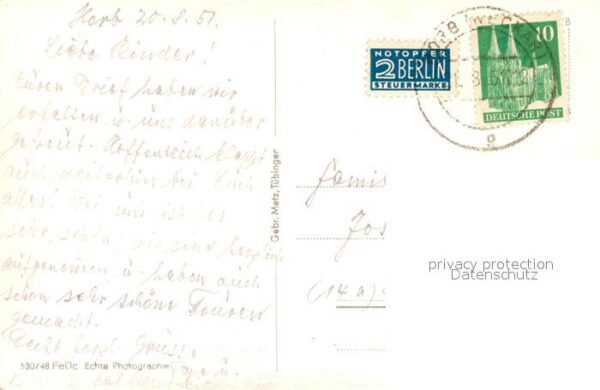 Horb 20.8.51.
Liebe Kinder!
Euren Brief haben wir
erhalten u. uns darüber
gefreut. Hoffentlich klappt
auch weiterhin bei Euch
alles! Bei uns ist es
sehr schön, wir sind herzlich
aufgenommen u. haben auch
schon sehr schöne Touren
gemacht.
Recht herzl. Grüsse
530/48 FeDc. Echte Photographie
Gebr. Metz, Tübingen
NOTOPFER
2 BERLIN
STEUERMARKE
10
DEUTSCHE POST
g
B
Famil
Jos
(14a)
privacy protection
Datenschutz